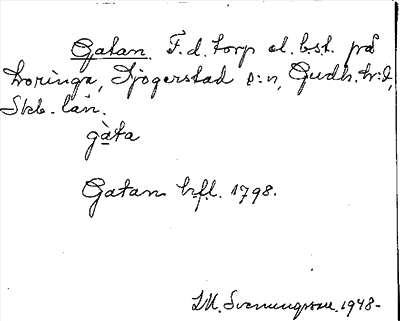 Gatan. F. d. torp el. bst. på
Woringa, Sjogerstad s:n, Gudh. h:d,
Skb. län.
gàta
Gatan hfl. 1798.
I.M. Svenungsson. 1948-